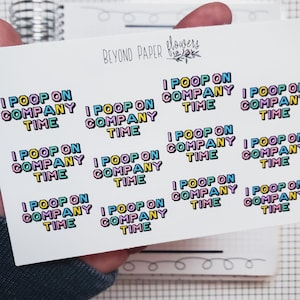 BEYOND PAPER flowers
I POOP ON
COMPANY
TIME
I POOP ON
COMPANY
TIME
I POOP ON
COMPANY
TIME
I POOP ON
COMPANY
TIME
I POOP ON
COMPANY
TIME
I POOP ON
COMPANY
TIME
I POOP ON
COMPANY
TIME
I POOP ON
COMPANY
TIME
I POOP ON
COMPANY
TIME
I POOP ON
COMPANY
TIME
I POOP ON
COMPANY
TIME
I POOP ON
COMPANY
TIME